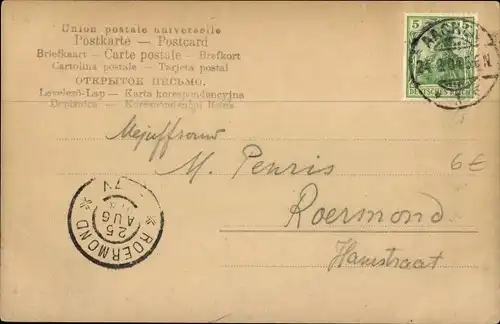 Union postale universelle
Postkarte — Postcard
Briefkaart — Carte postale — Brefkort
Cartolina postale — Tarjeta postal
ОТКРЫТОЕ ПИСЬМО.
Levelező-Lap — Karta korespondencyjna
Dopisnice — Korespondenčni listek
5 5
DEUTSCHES REICH
AACHEN
Mejuffrouw
M. Penris
6 €
Roermond
Hamstraat
ROERMOND
25 AUG